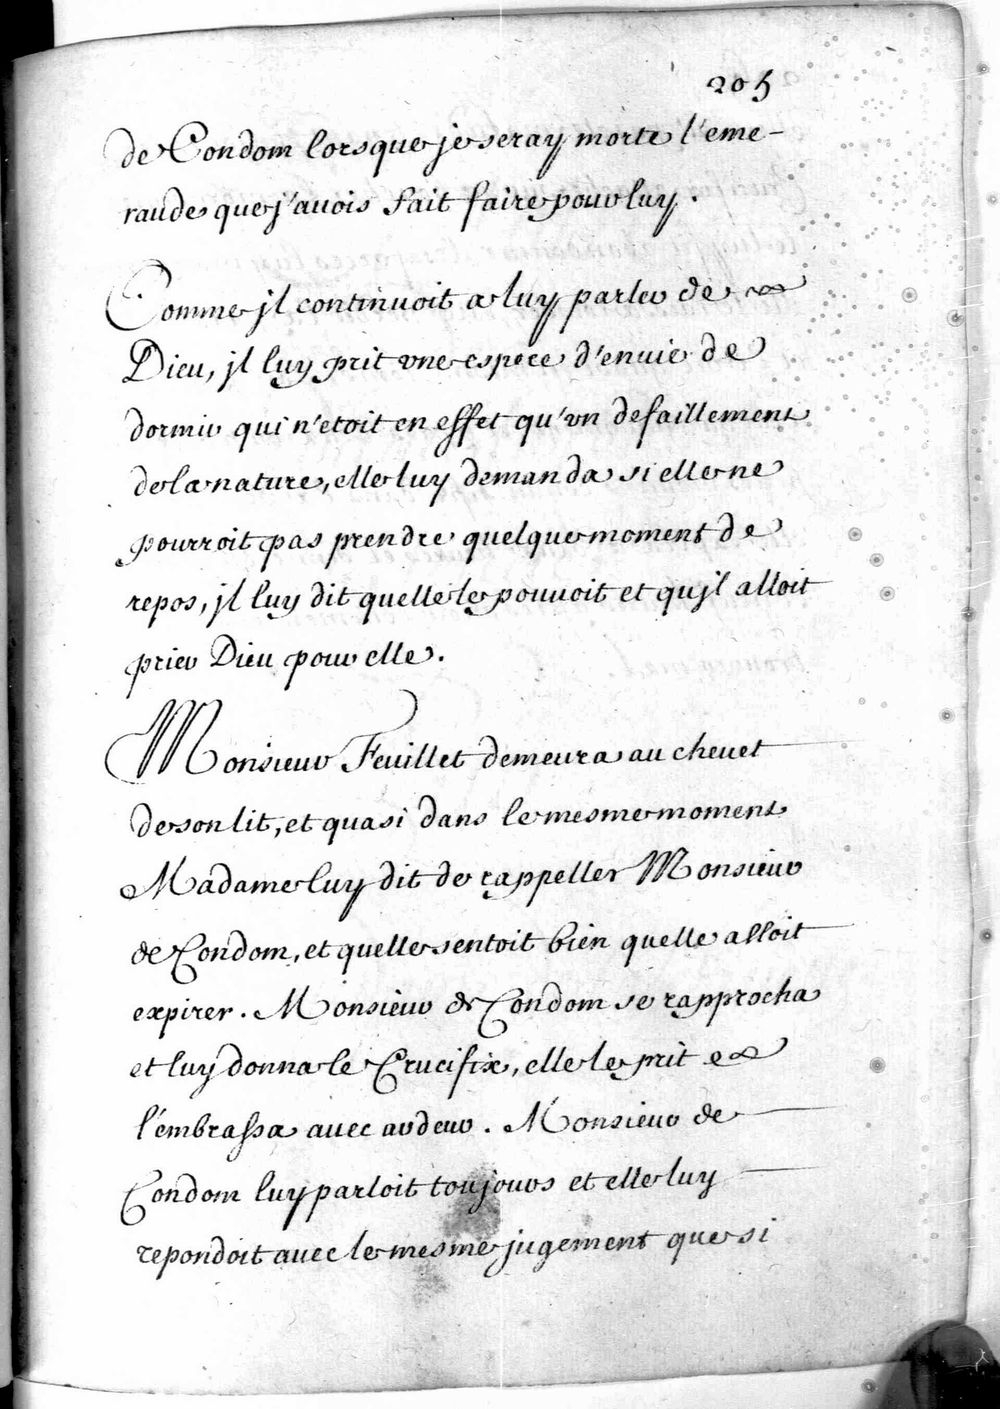 205
de Condom lorsque je seray morte l'eme-
raude que j'auois fait faire pour luy.
Comme jl continuoit a luy parler de
Dieu, jl luy prit vne espece d'enuie de
dormir qui n'etoit en effet qu'vn defaillement
de la nature, elle luy demanda si elle ne
pourroit pas prendre quelque moment de
repos, jl luy dit quelle le pouuoit et qu'jl alloit
prier Dieu pour elle.
Monsieur Feuillet demeura au cheuet
de son lit, et quasi dans le mesme moment
Madame luy dit de rappeller Monsieur
de Condom, et quelle sentoit bien quelle alloit
expirer. Monsieur de Condom se rapprocha
et luy donna le Crucifix, elle le prit e
l'embrassa auec ardeur. Monsieur de
Condom luy parloit toujours et elle luy
repondoit auec le mesme jugement que si